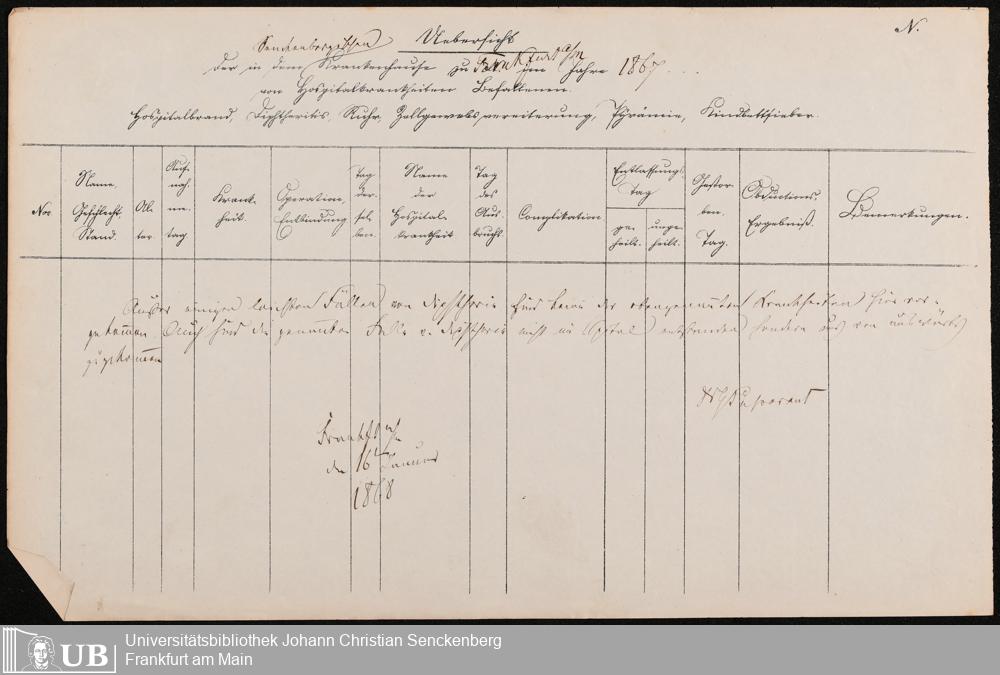 N.
Uebersicht
Senckenbergischen
der in dem Krankenhause zu Frankfurt a/M im Jahre 1867
von Hospitalkrankheiten Befallenen.
Hospitalbrand, Diphtheritis, Ruhr, Zellgewebsvereiterung, Pyämie, Kindbettfieber.
Nro.
Name, Geschlecht, Stand.
Al-ter
Auf-nah-me-tag
Krank-heit.
Operation, Entbindung
Tag der-sel-ben.
Name der Hospital-krankheit
Tag des Aus-bruchs
Complikation
Entlassungs Tag
ge-heilt.
unge-heilt.
Gestor-ben. Tag.
Obductions, Ergebniß.
Bemerkungen.
Außer einigen leichten Fällen von Diphtherie sind keine der obengenannten Krankheiten hier vor-
gekommen. Auch sind die genannten Fälle v. Diphtherie nicht im Spital entstanden sondern von auswärts
zugekommen
Frankft a/M
den 16 Januar
1868